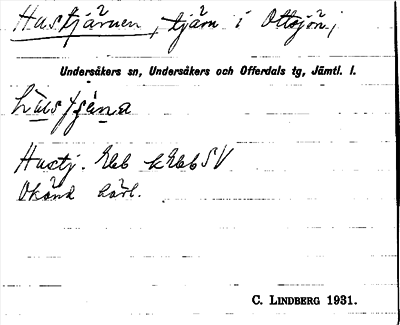 Hustjärnen, tjärn i Ottsjön;
Undersåkers sn, Undersåkers och Offerdals tg, Jämtl. l.
Hustj. Ekbl kEkbl SV
Okänd härl.
C. LINDBERG 1931.